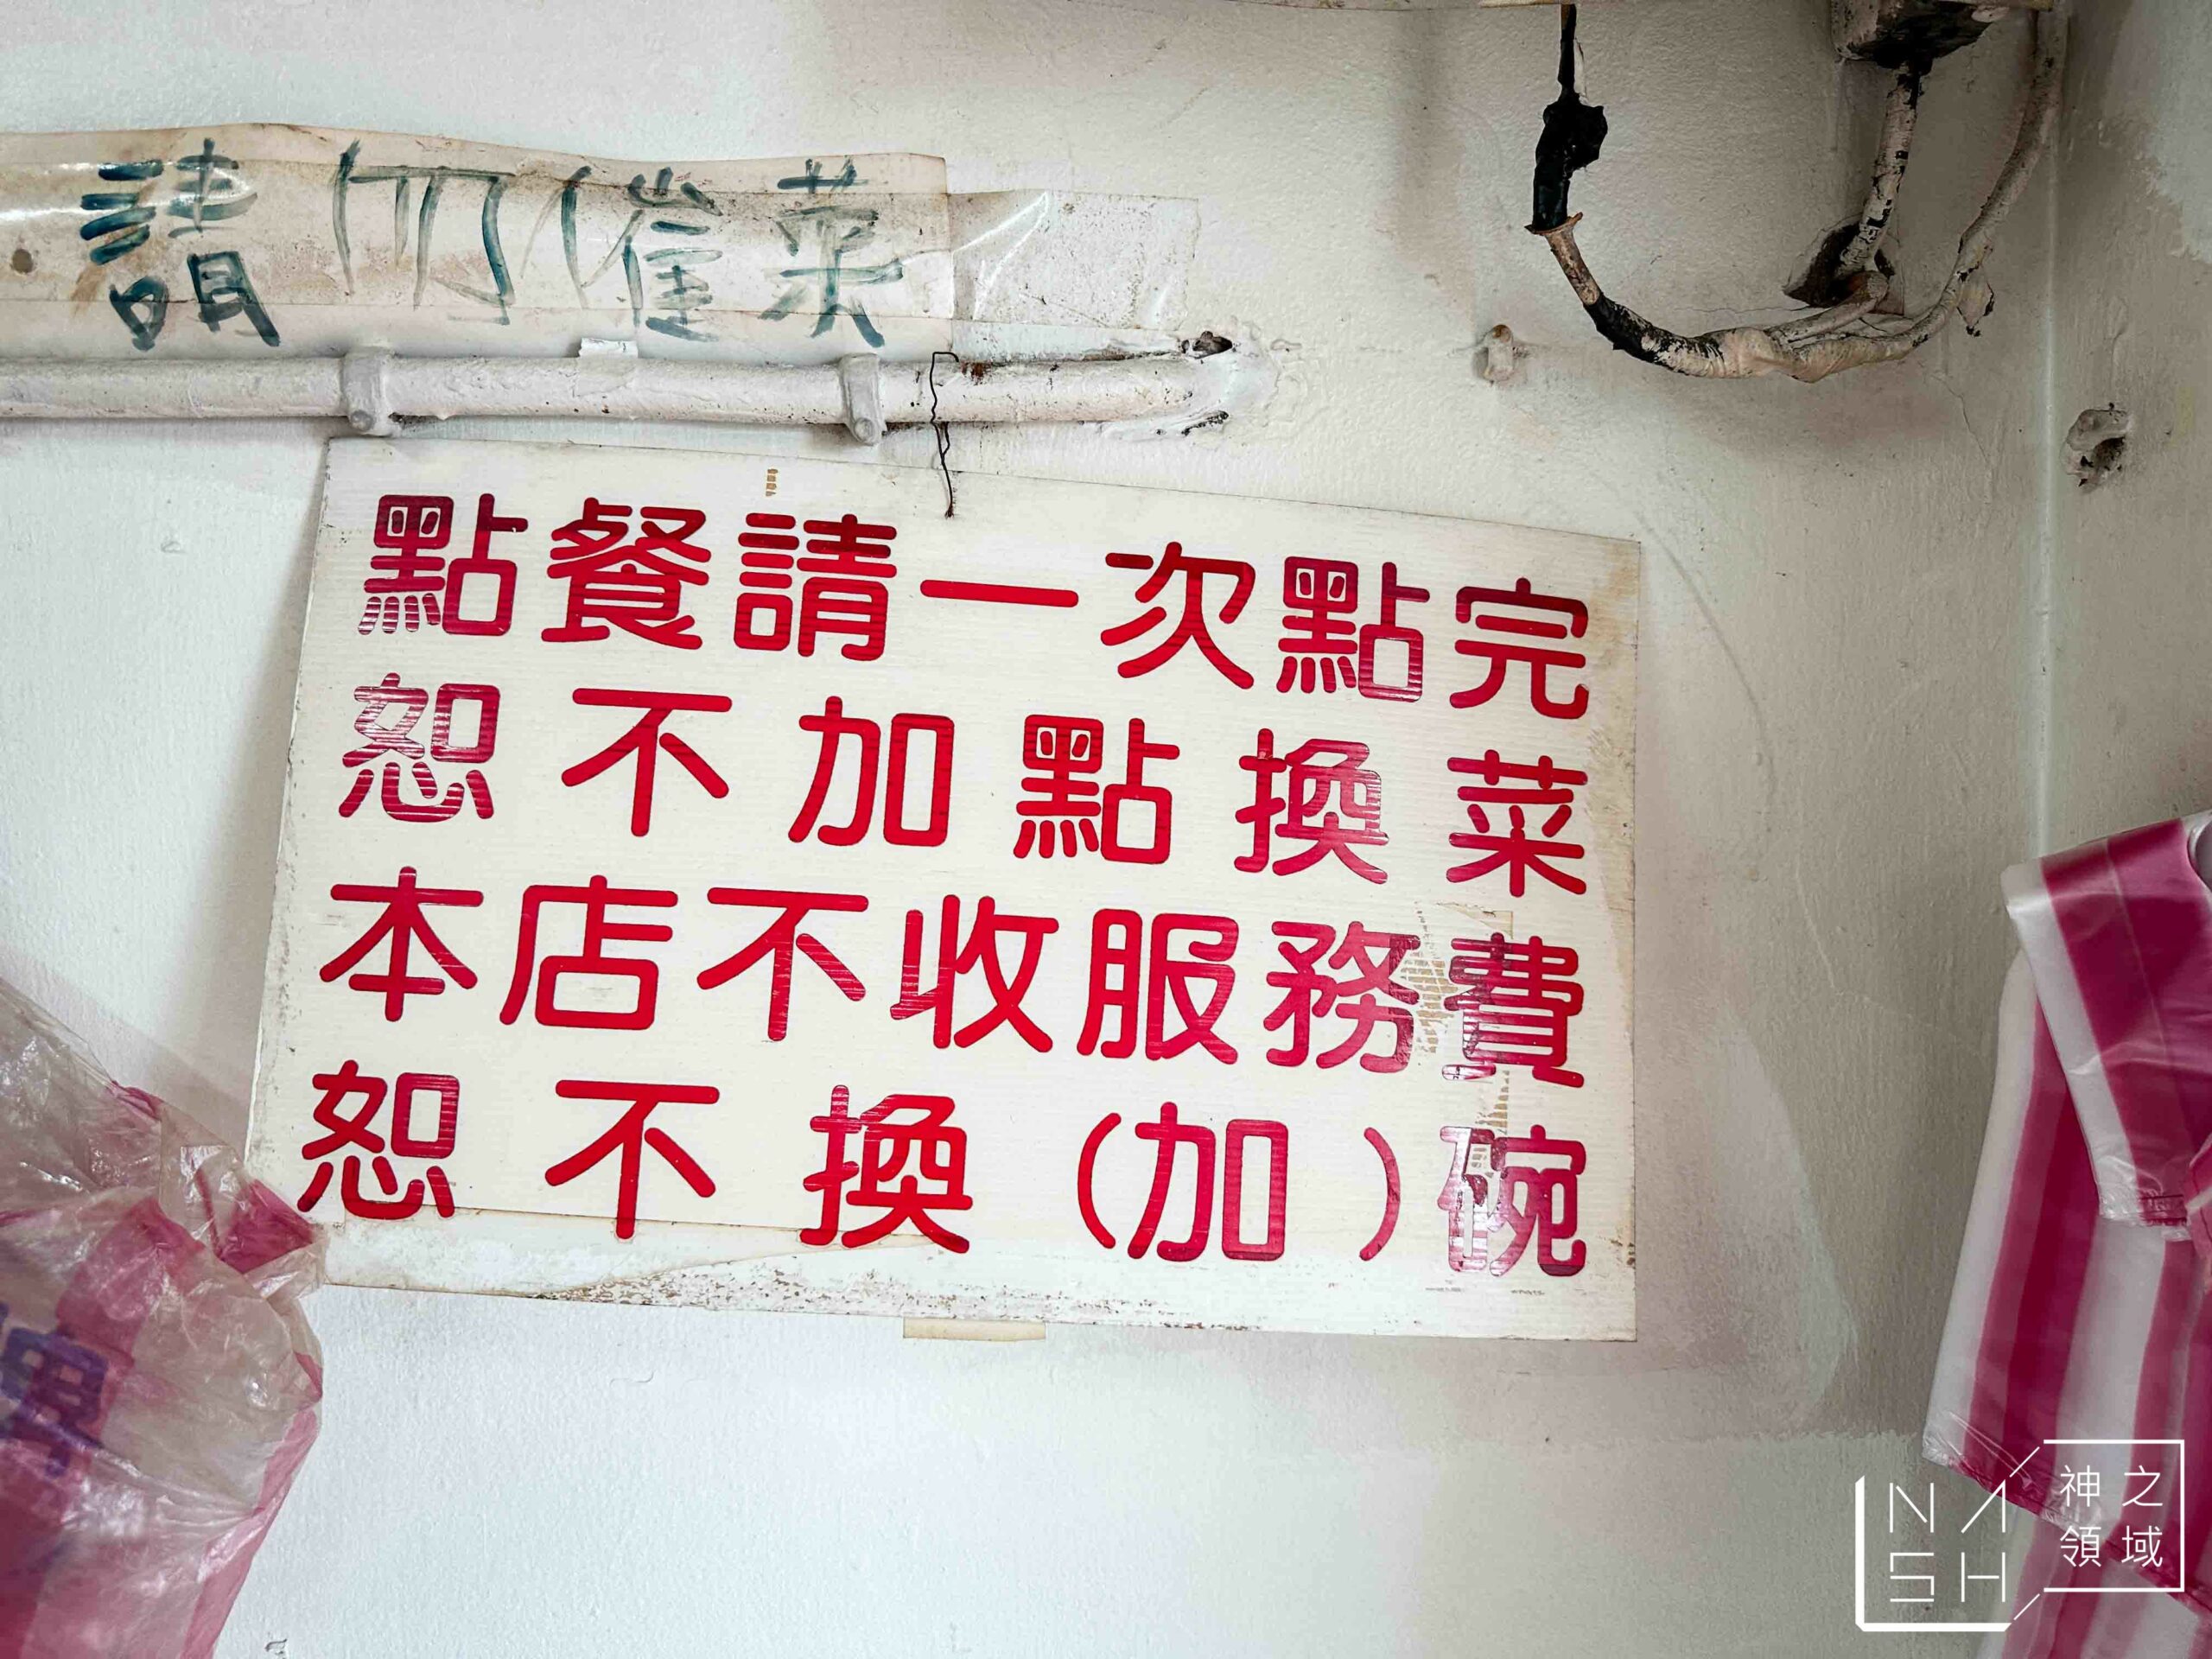 請勿催菜
點餐請一次點完
恕不加點換菜
本店不收服務費
恕不換(加)碗
NASH
神之
領域